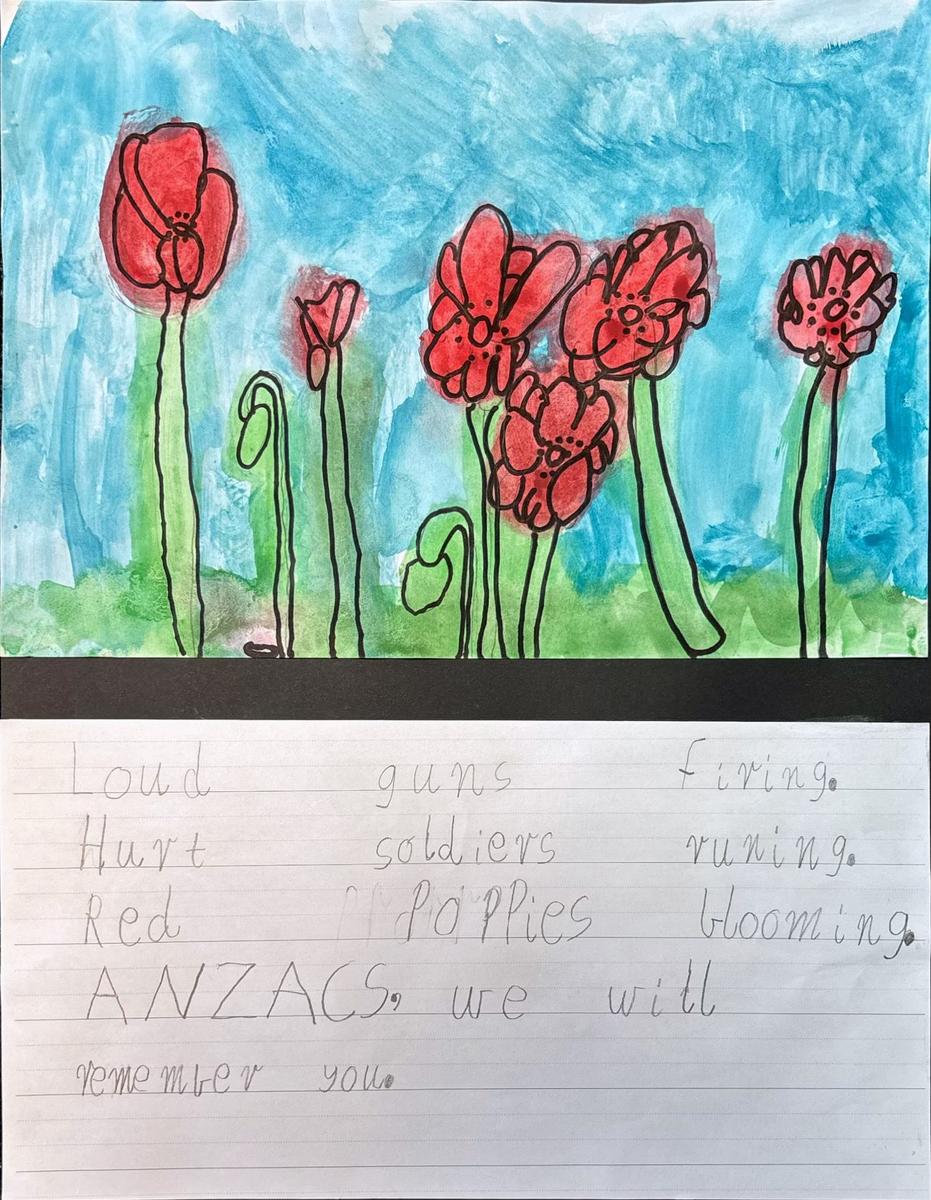 Loud guns firing.
Hurt soldiers runing.
Red Poppies blooming.
ANZACS, we will
remember you.